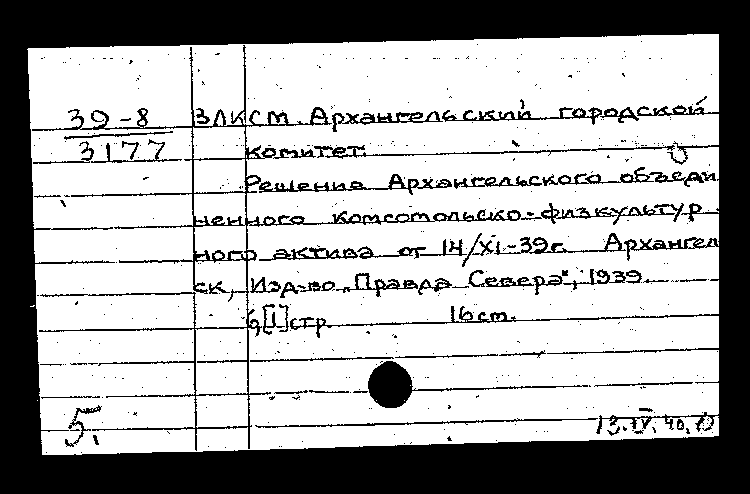 39-8 ВЛКСМ. Архангельский городской
3177 комитет.
Решение Архангельского объеди
ненного комсомольско-физкультур
ного актива от 14/XI-39г. Архангел
ск, Изд-во „Правда Севера", 1939.
6,[1]стр. 16 cm.
5. 13.IV.40.